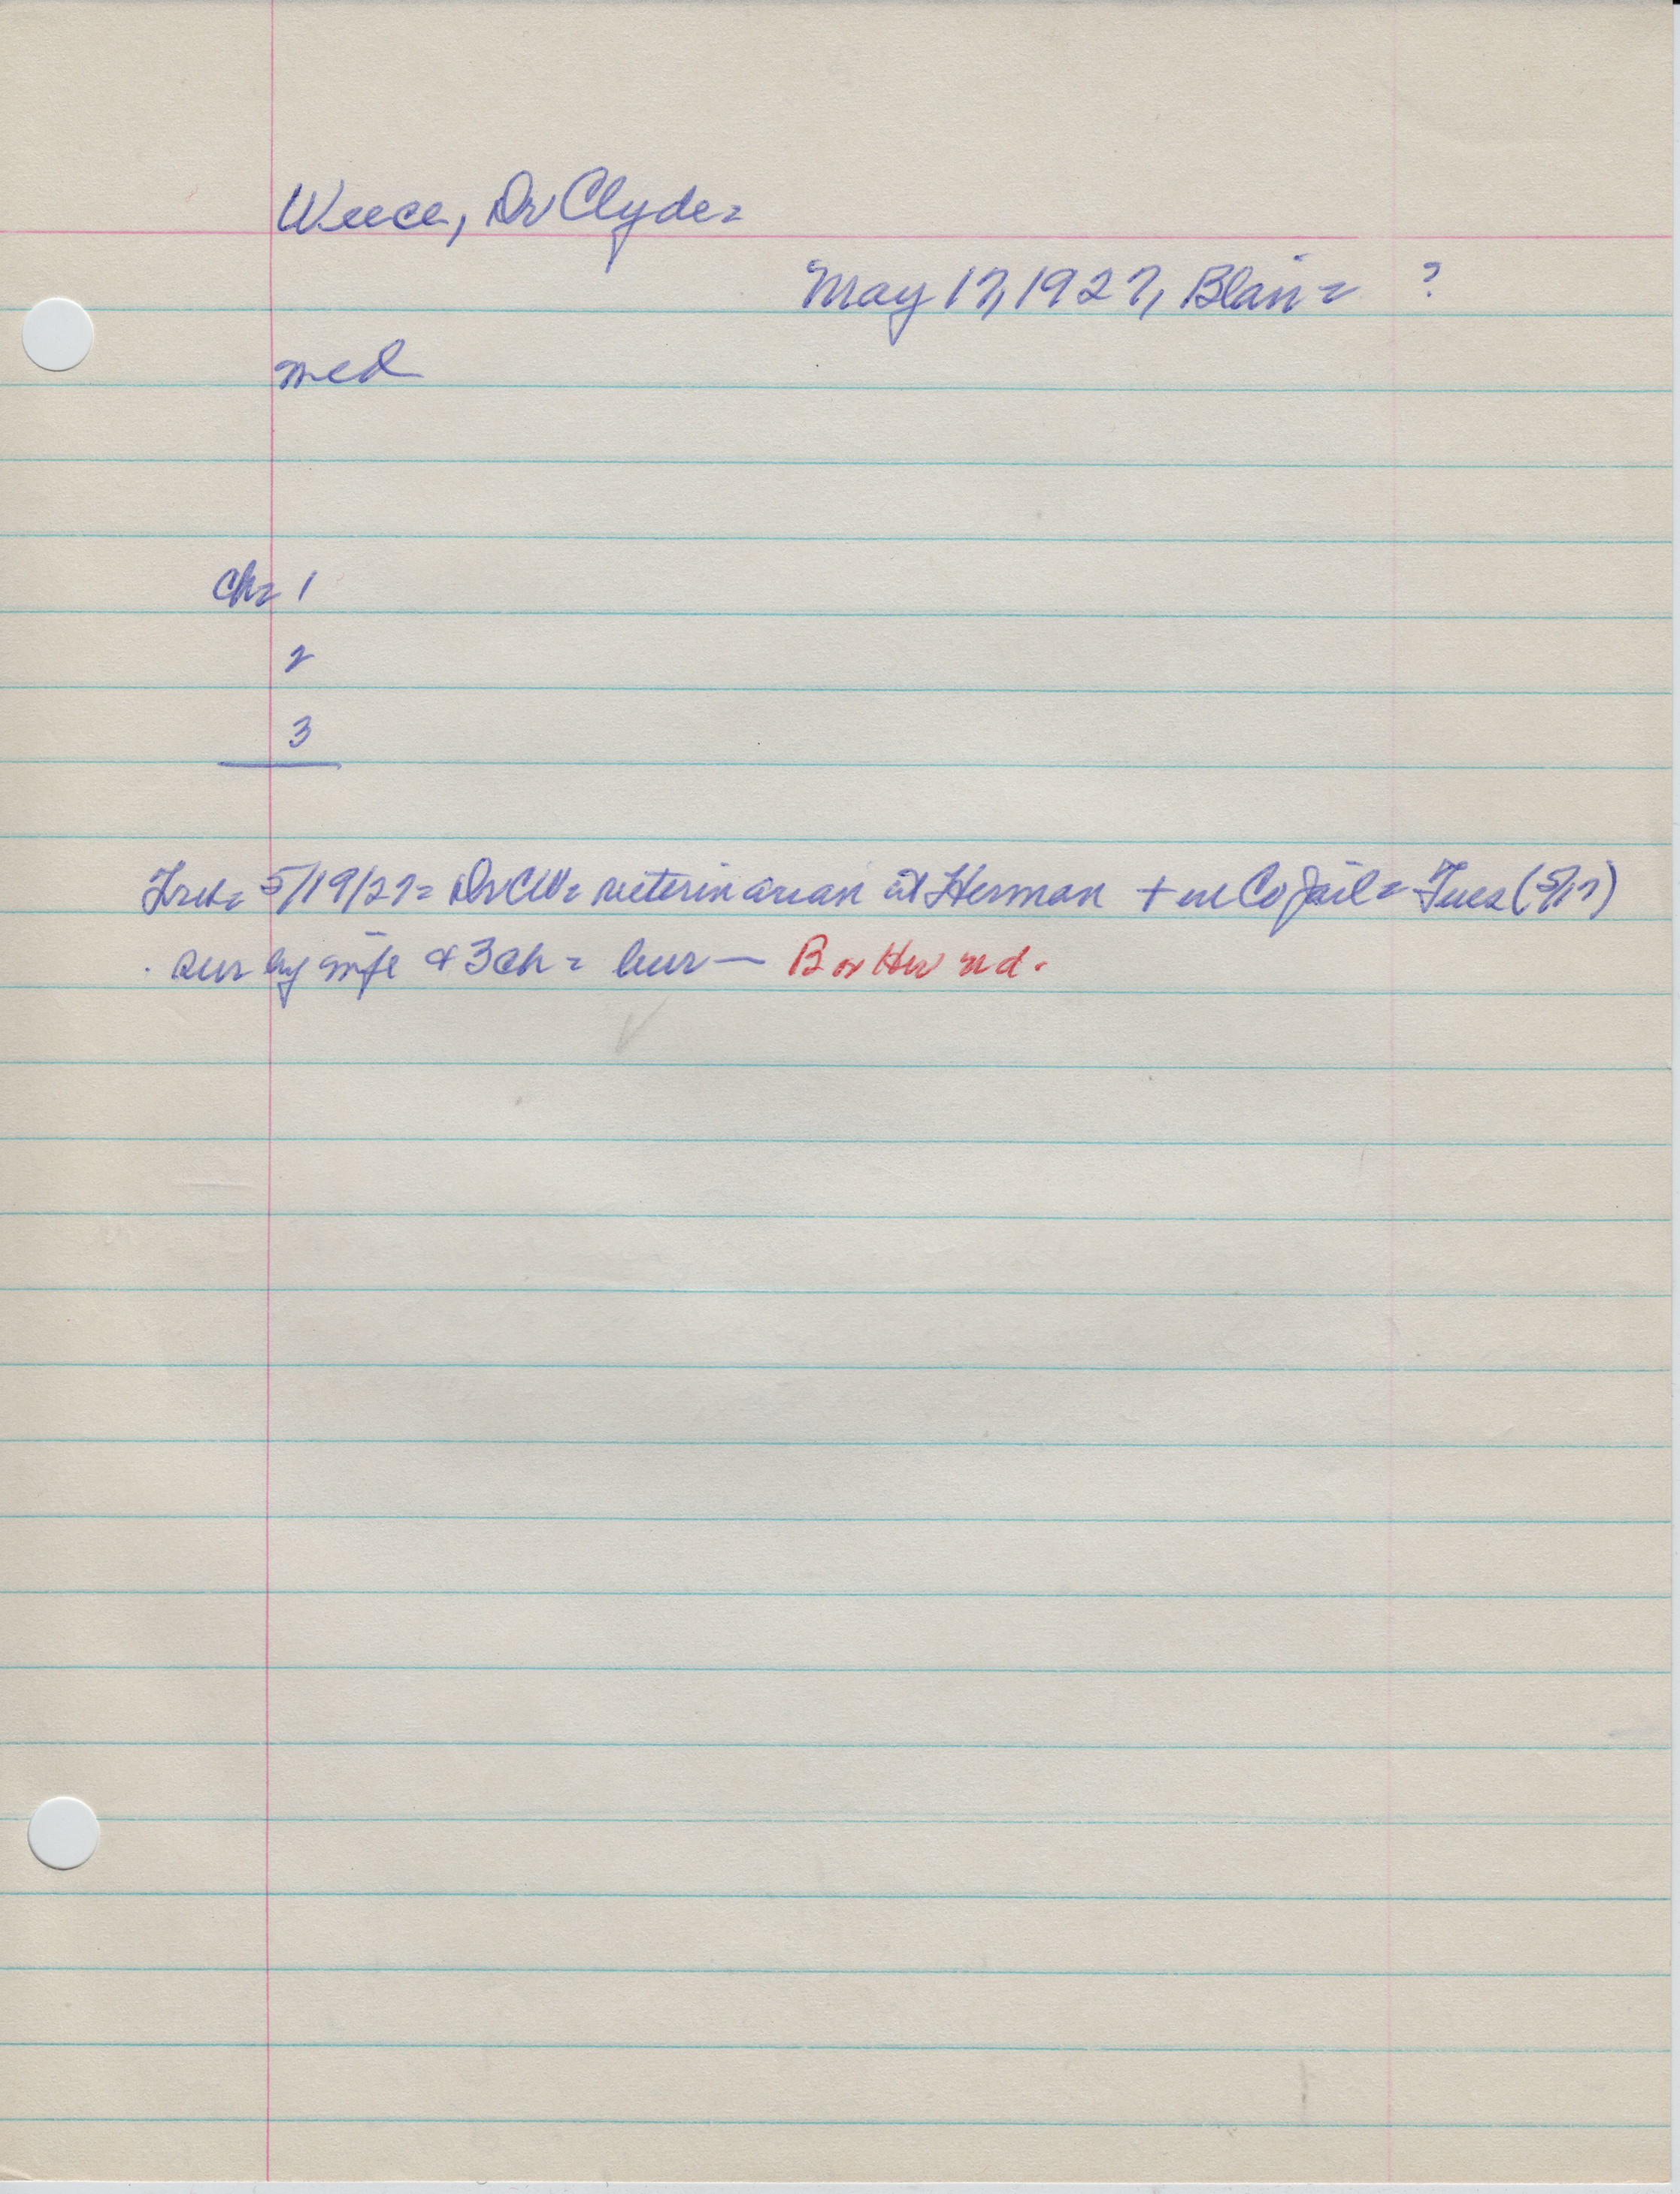 Weece, Dr Clyde =
May 17, 1927, Blair = ?
med
ch = 1
2
3
5/19/27 = Dr CW = veterinarian at Herman + in Co Jail = Tues (5/17)
sur by wife & 3 ch = bur — B or Her nd.